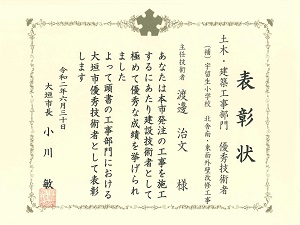 表彰状
土木・建築工事部門 優秀技術者
(補)宇留生小学校 北舎南・東面外壁改修工事
主任技術者 渡邊治文 様
あなたは本市発注の工事を施工
するにあたり建設技術者として
極めて優秀な成績を挙げられ
ました
よって頭書の工事部門における
大垣市優秀技術者として表彰
します
令和二年六月三十日
大垣市長 小川 敏